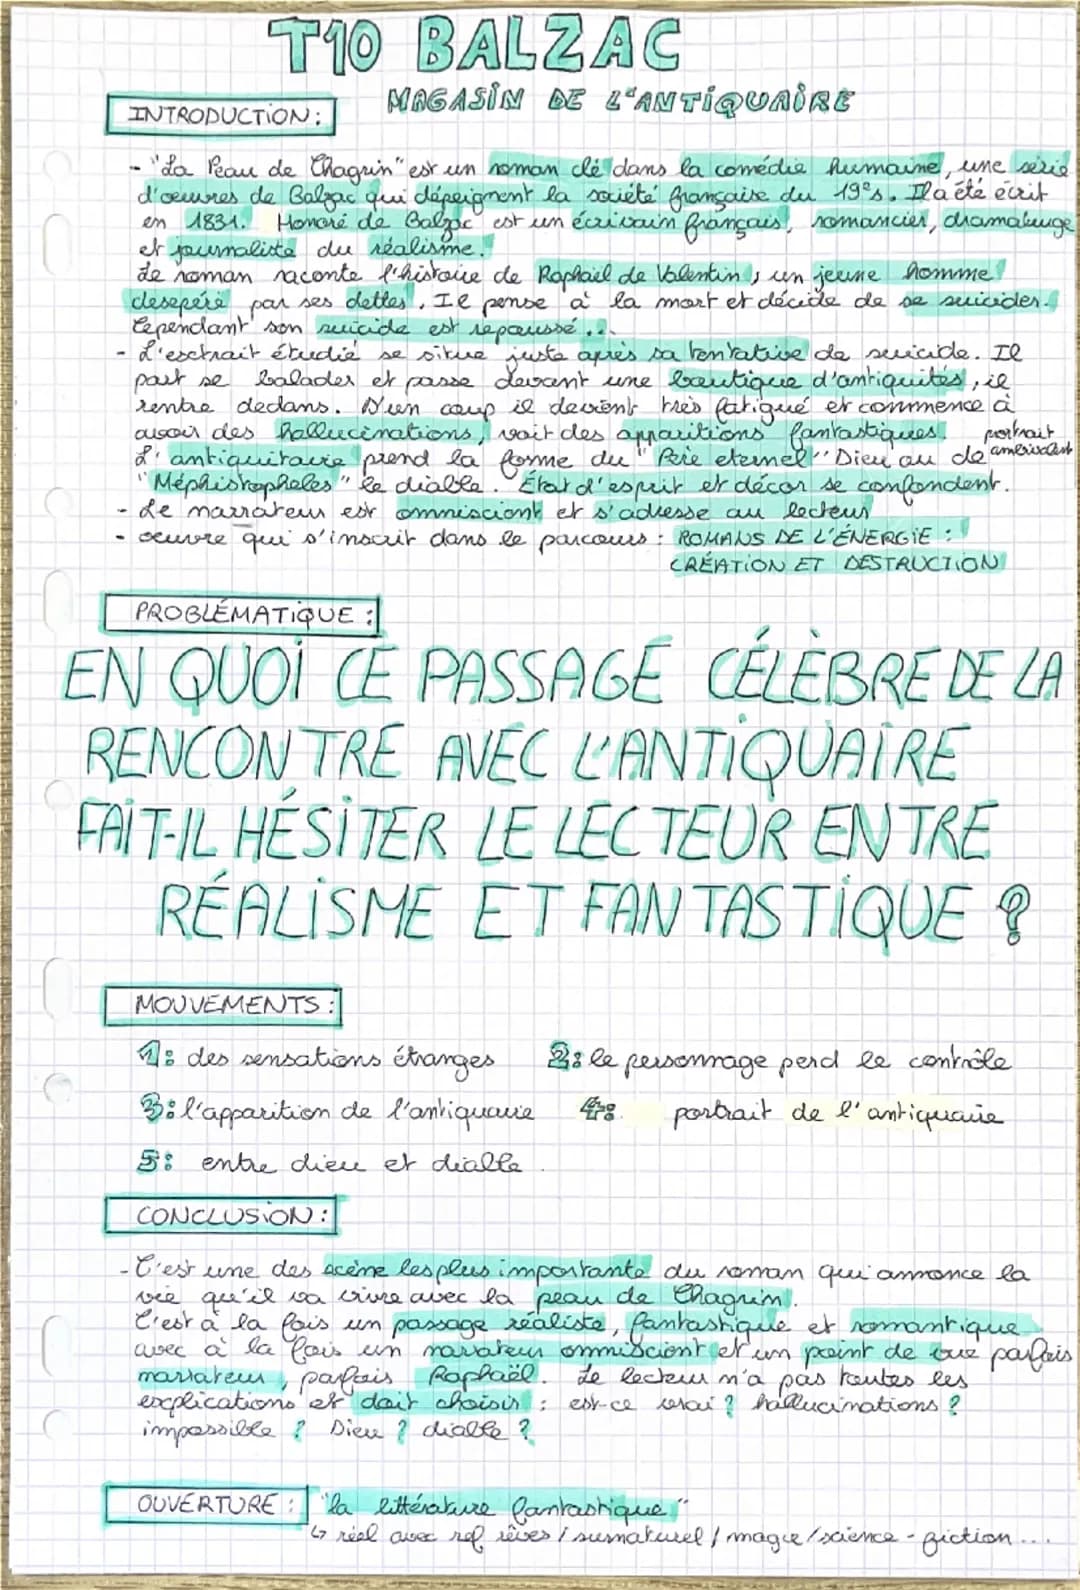 T10 BALZAC
MAGASIN DE L'ANTIQUAIRE
INTRODUCTION :
- "La Peau de Chagrin" est un roman clé dans la comédie humaine, une série
d'oeuvres de Balzac qui dépeignent la société française du 19es. Il a été écrit
en 1831. Honoré de Balzac est un écrivain français, romancier, dramaturge
et journaliste du réalisme.
Le roman raconte l'histoire de Raphaël de Valentin, un jeune homme
désepéré par ses dettes. Il pense à la mort et décide de se suicider.
Cependant son suicide est repoussé...
- L'esctrait étudié se situe juste après sa tentative de suicide. Il
part se balader et passe devant une boutique d'antiquités, il
rentre dedans. D'un coup il devient très fatigué et commence à
avoir des hallucinations, voit des apparitions fantastiques. portrait
L'antiquitaire prend la forme du "Père eternel" Dieu ou de ambivalent
"Méphistopheles" le diable. État d'esprit et décor se confondent.
- Le narrateur est omniscient et s'adresse au lecteur
- oeuvre qui s'inscrit dans le parcours : ROMANS DE L'ÉNERGIE :
CRÉATION ET DESTRUCTION
PROBLÉMATIQUE :
EN QUOI CE PASSAGE CÉLÈBRE DE LA
RENCONTRE AVEC L'ANTIQUAIRE
FAIT-IL HÉSITER LE LECTEUR ENTRE
RÉALISME ET FANTASTIQUE ?
MOUVEMENTS :
1: des sensations étranges 2: le personnage perd le contrôle
3: l'apparition de l'antiquaire 4: portrait de l'antiquaire
5: entre dieu et diable
CONCLUSION :
- C'est une des scène les plus importante du roman qui annonce la
vie qu'il va vivre avec la peau de Chagrin.
C'est à la fois un passage réaliste, fantastique et romantique
avec à la fois un narrateur omniscient et un point de vue parfois
narrateur, parfois Raphaël. Le lecteur n'a pas toutes les
explications et doit choisir : est-ce vrai ? hallucinations ?
impossible ? Dieu ? diable ?
OUVERTURE : "la littérature fantastique"
↳ réel avec ref rêves / surnaturel / magie / science-fiction...